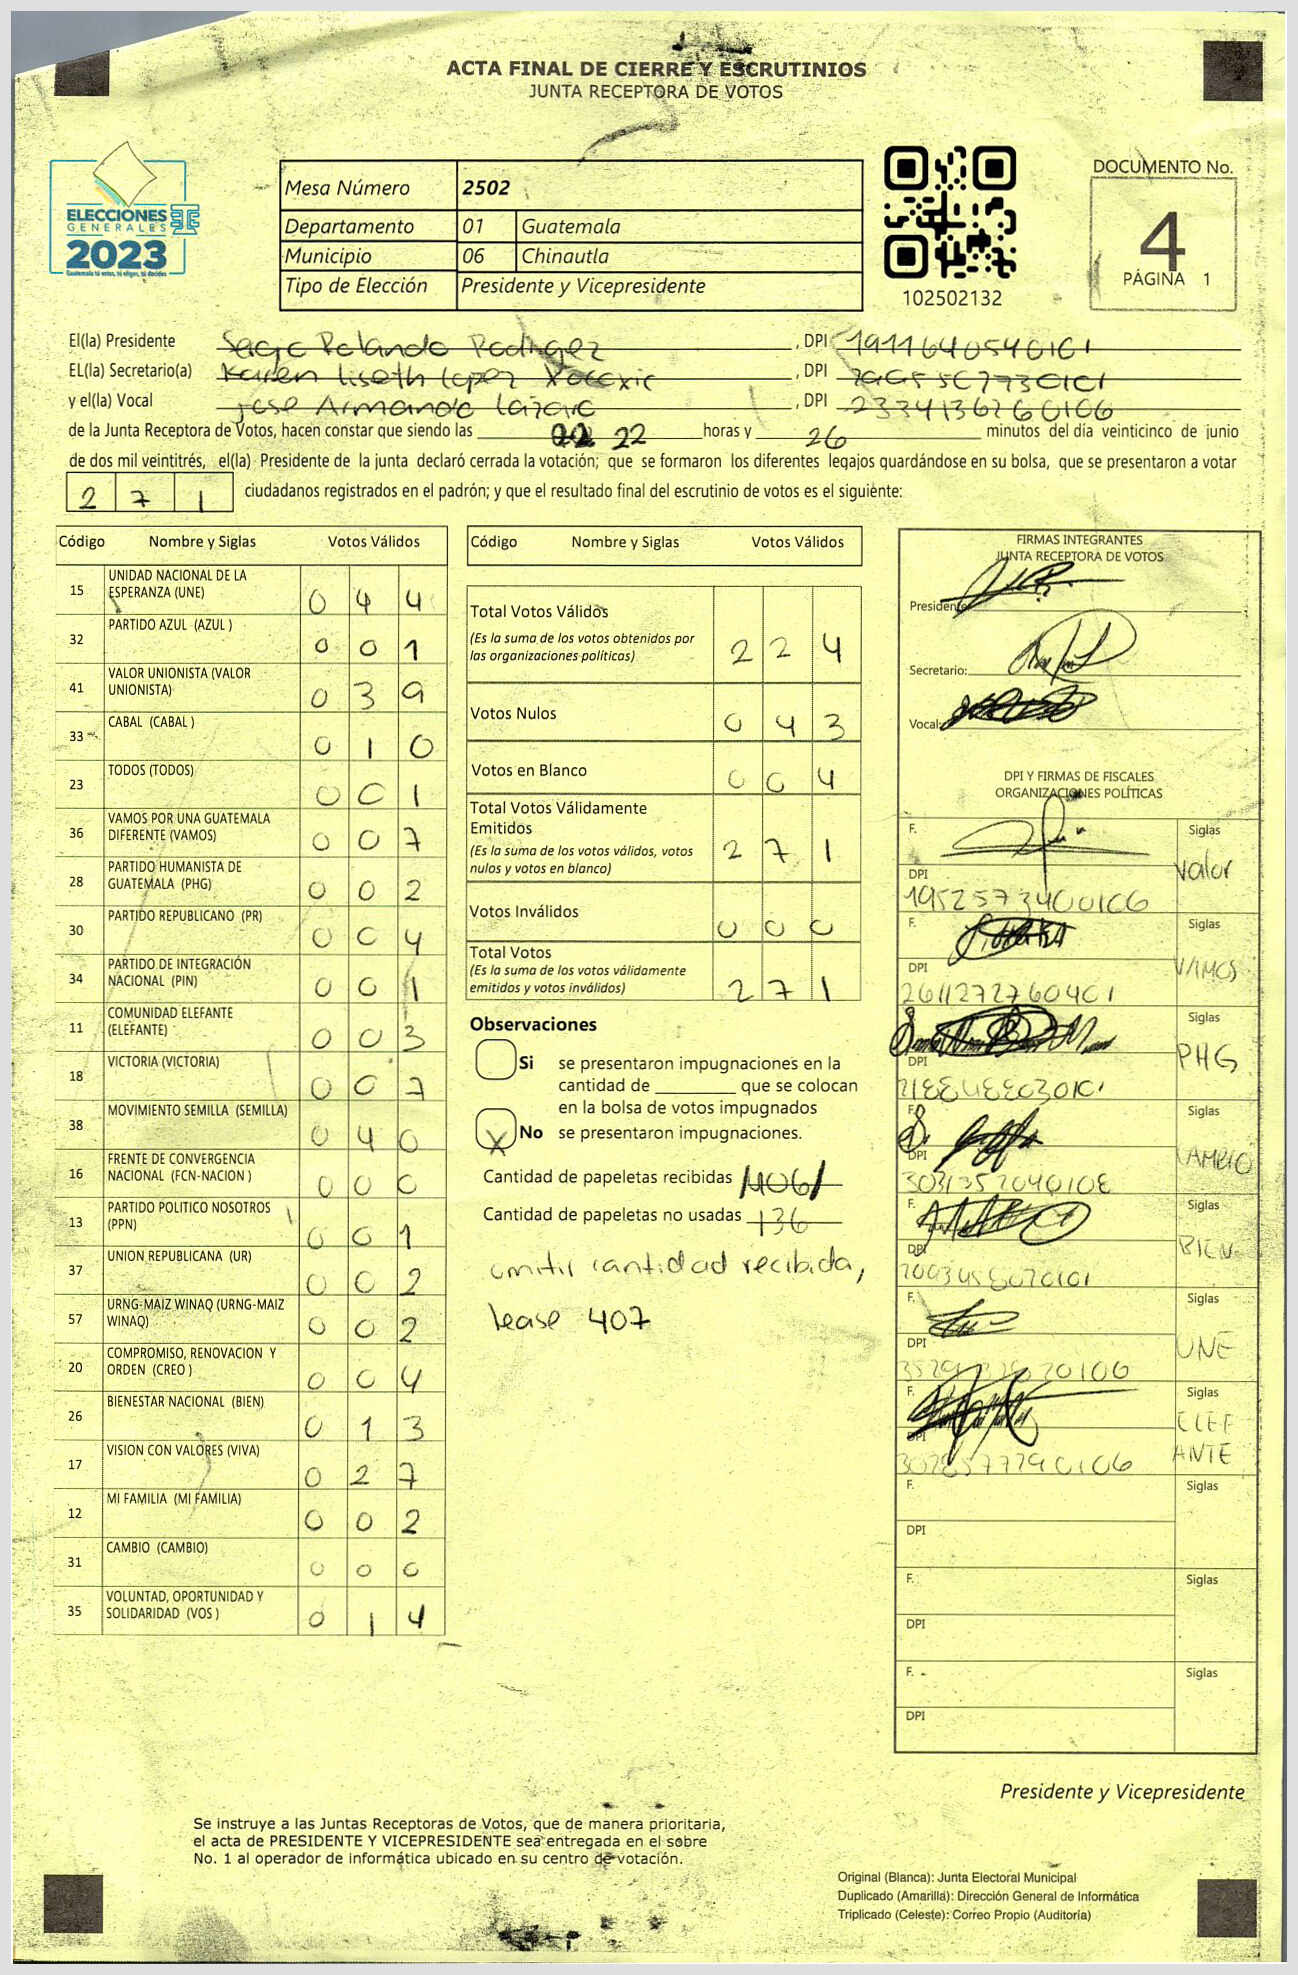 ACTA FINAL DE CIERRE Y ESCRUTINIOS
JUNTA RECEPTORA DE VOTOS
ELECCIONES
GENERALES
2023
Guatemala tú votas, tú eliges, tú decides
Mesa Número 2502
Departamento 01 Guatemala
Municipio 06 Chinautla
Tipo de Elección Presidente y Vicepresidente
102502132
DOCUMENTO No.
4
PÁGINA 1
El(la) Presidente Rolando , DPI 1911640540101
EL(la) Secretario(a) Karen Liseth Lopez , DPI
y el(la) Vocal Jose Armando Lazaro , DPI 2334136260106
de la Junta Receptora de Votos, hacen constar que siendo las 22 horas y 26 minutos del día veinticinco de junio
de dos mil veintitrés, el(la) Presidente de la junta declaró cerrada la votación; que se formaron los diferentes legajos quardándose en su bolsa, que se presentaron a votar
2 7 1 ciudadanos registrados en el padrón; y que el resultado final del escrutinio de votos es el siguiente:
Código Nombre y Siglas Votos Válidos
15 UNIDAD NACIONAL DE LA ESPERANZA (UNE) 0 4 4
32 PARTIDO AZUL (AZUL ) 0 0 1
41 VALOR UNIONISTA (VALOR UNIONISTA) 0 3 9
33 CABAL (CABAL ) 0 1 0
23 TODOS (TODOS) 0 0 1
36 VAMOS POR UNA GUATEMALA DIFERENTE (VAMOS) 0 0 7
28 PARTIDO HUMANISTA DE GUATEMALA (PHG) 0 0 2
30 PARTIDO REPUBLICANO (PR) 0 0 4
34 PARTIDO DE INTEGRACIÓN NACIONAL (PIN) 0 0 1
11 COMUNIDAD ELEFANTE (ELEFANTE) 0 0 3
18 VICTORIA (VICTORIA) 0 0 7
38 MOVIMIENTO SEMILLA (SEMILLA) 0 4 0
16 FRENTE DE CONVERGENCIA NACIONAL (FCN-NACION ) 0 0 0
13 PARTIDO POLITICO NOSOTROS (PPN) 0 0 1
37 UNION REPUBLICANA (UR) 0 0 2
57 URNG-MAIZ WINAQ (URNG-MAIZ WINAQ) 0 0 2
20 COMPROMISO, RENOVACION Y ORDEN (CREO ) 0 0 4
26 BIENESTAR NACIONAL (BIEN) 0 1 3
17 VISION CON VALORES (VIVA) 0 2 7
12 MI FAMILIA (MI FAMILIA) 0 0 2
31 CAMBIO (CAMBIO) 0 0 0
35 VOLUNTAD, OPORTUNIDAD Y SOLIDARIDAD (VOS ) 0 1 4
Código Nombre y Siglas Votos Válidos
Total Votos Válidos 2 2 4
(Es la suma de los votos obtenidos por
las organizaciones políticas)
Votos Nulos 0 4 3
Votos en Blanco 0 0 4
Total Votos Válidamente
Emitidos 2 7 1
(Es la suma de los votos válidos, votos
nulos y votos en blanco)
Votos Inválidos 0 0 0
Total Votos 2 7 1
(Es la suma de los votos válidamente
emitidos y votos inválidos)
Observaciones
Si se presentaron impugnaciones en la
cantidad de ________ que se colocan
en la bolsa de votos impugnados
X No se presentaron impugnaciones.
Cantidad de papeletas recibidas
Cantidad de papeletas no usadas 136
omitir cantidad recibida,
lease 407
FIRMAS INTEGRANTES
JUNTA RECEPTORA DE VOTOS
Presidente:
Secretario:
Vocal:
DPI Y FIRMAS DE FISCALES
ORGANIZACIONES POLÍTICAS
F. Siglas
valor
DPI
1952573400106
F. Siglas
VAMOS
DPI
2611272760401
F. Siglas
PHG
DPI
F. Siglas
CAMBIO
DPI
F. Siglas
BIEN
DPI
F. Siglas
UNE
DPI
F. Siglas
ELEF
ANTE
DPI
F. Siglas
DPI
F. Siglas
DPI
F. Siglas
DPI
Presidente y Vicepresidente
Se instruye a las Juntas Receptoras de Votos, que de manera prioritaria,
el acta de PRESIDENTE Y VICEPRESIDENTE sea entregada en el sobre
No. 1 al operador de informática ubicado en su centro de votación.
Original (Blanca): Junta Electoral Municipal
Duplicado (Amarilla): Dirección General de Informática
Triplicado (Celeste): Correo Propio (Auditoría)